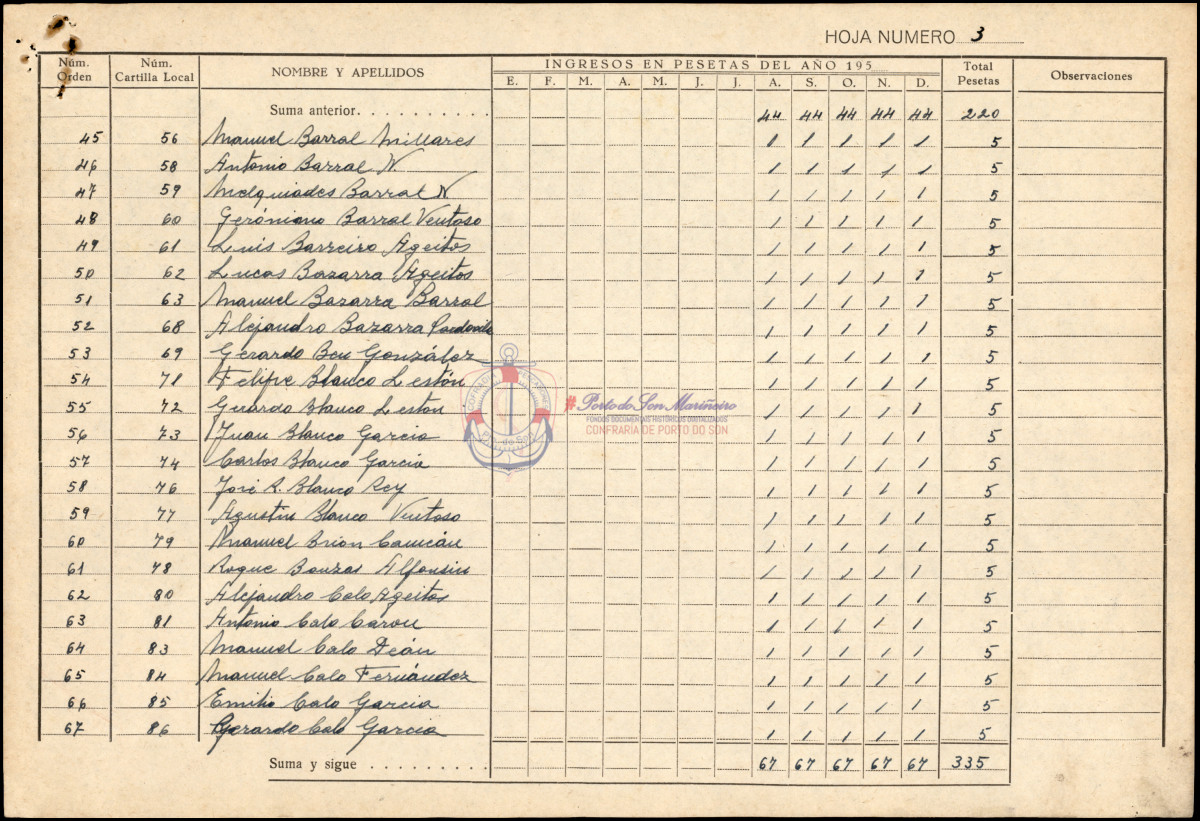 HOJA NUMERO 3
Núm. Orden Núm. Cartilla Local NOMBRE Y APELLIDOS INGRESOS EN PESETAS DEL AÑO 195 Total Pesetas Observaciones
E. F. M. A. M. J. J. A. S. O. N. D.
Suma anterior. . . . . . . . . . 44 44 44 44 44 220
45 56 Manuel Barral Millares 1 1 1 1 1 5
46 58 Antonio Barral N. 1 1 1 1 1 5
47 59 Melquiades Barral N 1 1 1 1 1 5
48 60 Gerónimo Barral Ventoso 1 1 1 1 1 5
49 61 Luis Barreiro Ageitos 1 1 1 1 1 5
50 62 Lucas Bazarra Ageitos 1 1 1 1 1 5
51 63 Manuel Bazarra Barral 1 1 1 1 1 5
52 68 Alejandro Bazarra 1 1 1 1 1 5
53 69 Gerardo Ben González 1 1 1 1 1 5
54 71 Felipe Blanco Lestón 1 1 1 1 1 5
55 72 Gerardo Blanco Leston 1 1 1 1 1 5
56 73 Juan Blanco Garcia 1 1 1 1 1 5
57 74 Carlos Blanco Garcia 1 1 1 1 1 5
58 76 José R. Blanco Rey 1 1 1 1 1 5
59 77 Agustin Blanco Ventoso 1 1 1 1 1 5
60 79 Manuel Brion Camcán 1 1 1 1 1 5
61 78 Roque Bouzas Alfonsin 1 1 1 1 1 5
62 80 Alejandro Calo Ageitos 1 1 1 1 1 5
63 81 Antonio Calo Carou 1 1 1 1 1 5
64 83 Manuel Calo Deán 1 1 1 1 1 5
65 84 Manuel Calo Fernández 1 1 1 1 1 5
66 85 Emilio Calo Garcia 1 1 1 1 1 5
67 86 Gerardo Calo Garcia 1 1 1 1 1 5
Suma y sigue . . . . . . . . . 67 67 67 67 67 335
#Porto do Son Mariñeiro
FONDOS DOCUMENTAIS HISTÓRICOS DIGITALIZADOS
CONFRARÍA DE PORTO DO SON